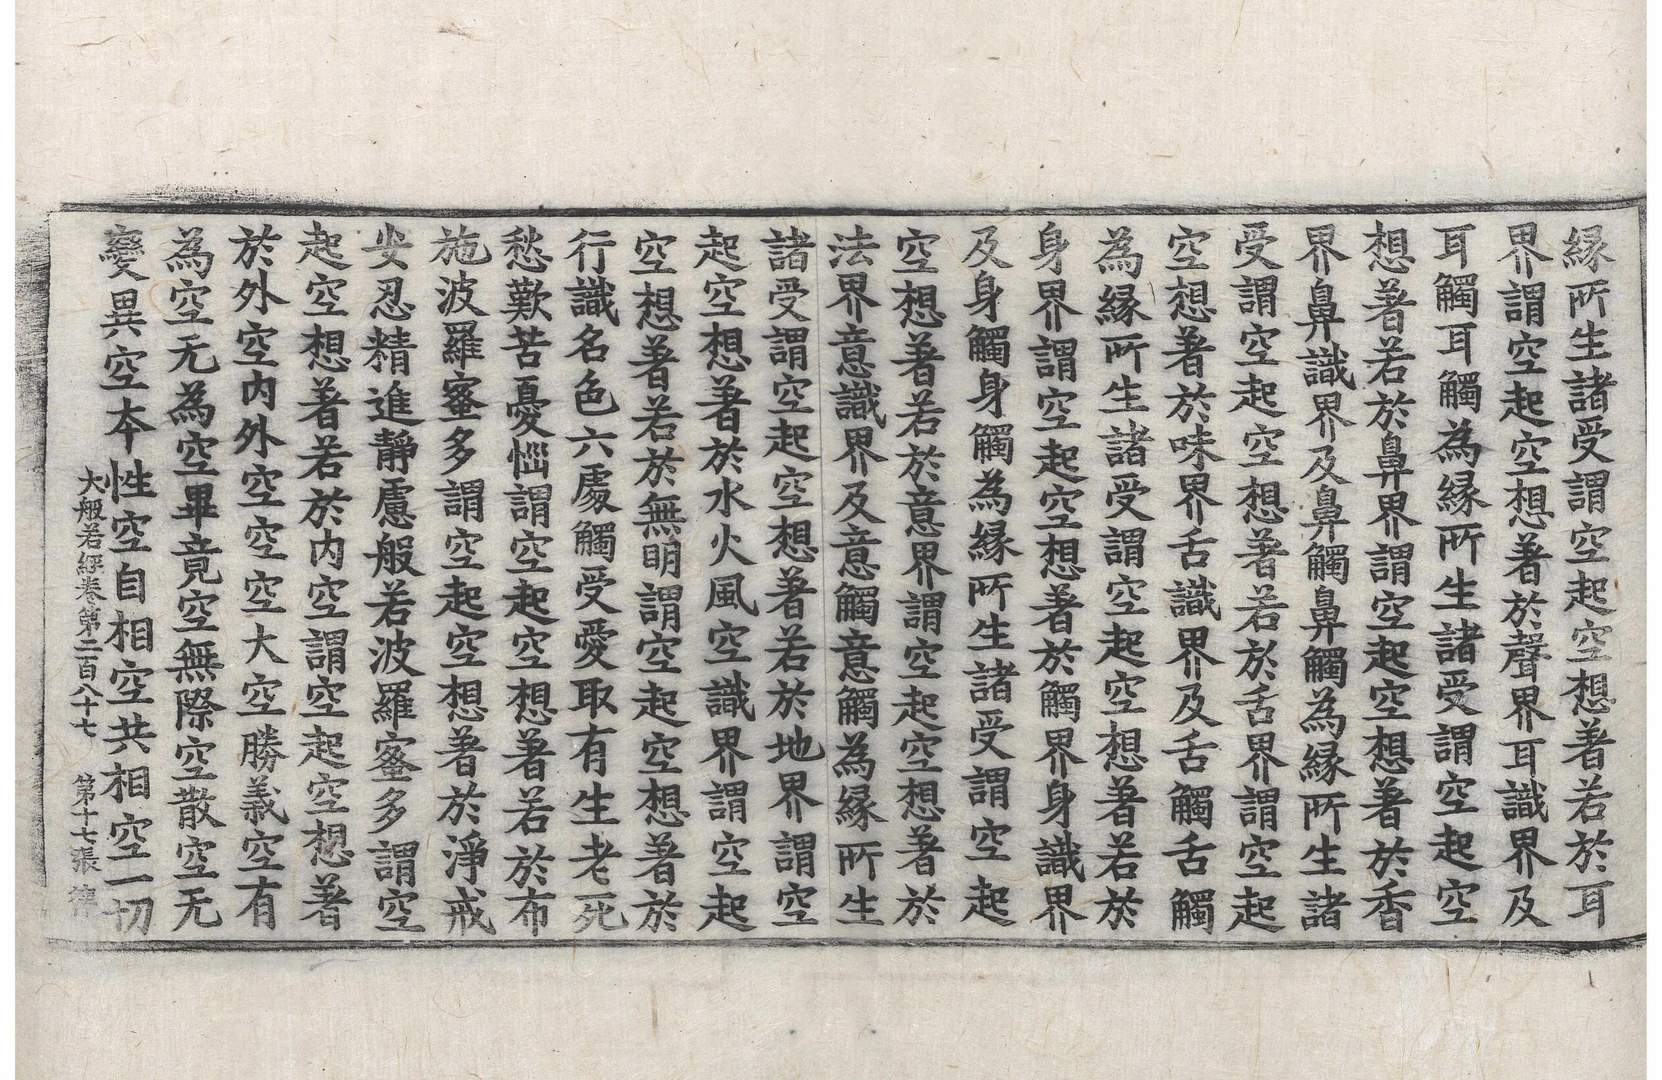 縁所生諸受謂空起空想著若於耳
界謂空起空想著於聲界耳識界及
耳觸耳觸為縁所生諸受謂空起空
想著若於鼻界謂空起空想著於香
界鼻識界及鼻觸鼻觸為縁所生諸
受謂空起空想著若於舌界謂空起
空想著於味界舌識界及舌觸舌觸
為縁所生諸受謂空起空想著若於
身界謂空起空想著於觸界身識界
及身觸身觸為縁所生諸受謂空起
空想著若於意界謂空起空想著於
法界意識界及意觸意觸為縁所生
諸受謂空起空想著若於地界謂空
起空想著於水火風空識界謂空起
空想著若於無明謂空起空想著於
行識名色六處觸受愛取有生老死
愁歎苦憂惱謂空起空想著若於布
施波羅蜜多謂空起空想著於淨戒
安忍精進靜慮般若波羅蜜多謂空
起空想著若於内空謂空起空想著
於外空内外空空空大空勝義空有
為空无為空畢竟空無際空散空无
變異空本性空自相空共相空一切
大般若經卷第二百八十七 第十七張